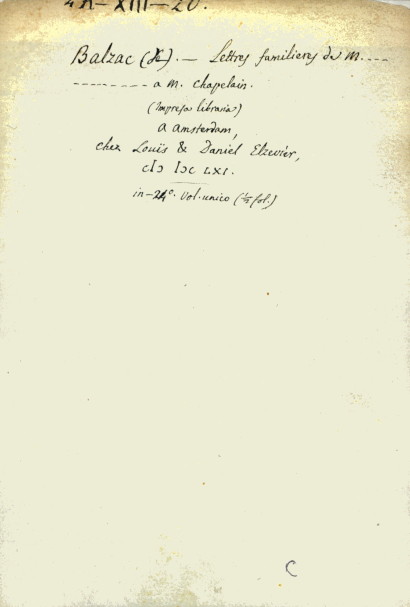 4A-XIII-20.
Balzac (X). — Lettres familieres de M. ----
--------- a M. Chapelain.
(Impresa libraria)
a Amsterdam,
chez Louïs & Daniel Elzevier,
cIɔ Iɔc LXI.
in-24º. Vol. unico (⅓ fol.)
C